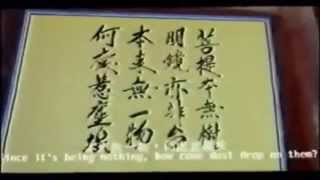 菩提本無樹
明鏡亦非台
本來無一物
何處惹塵埃
Since it's being nothing, how come dust drop on them?